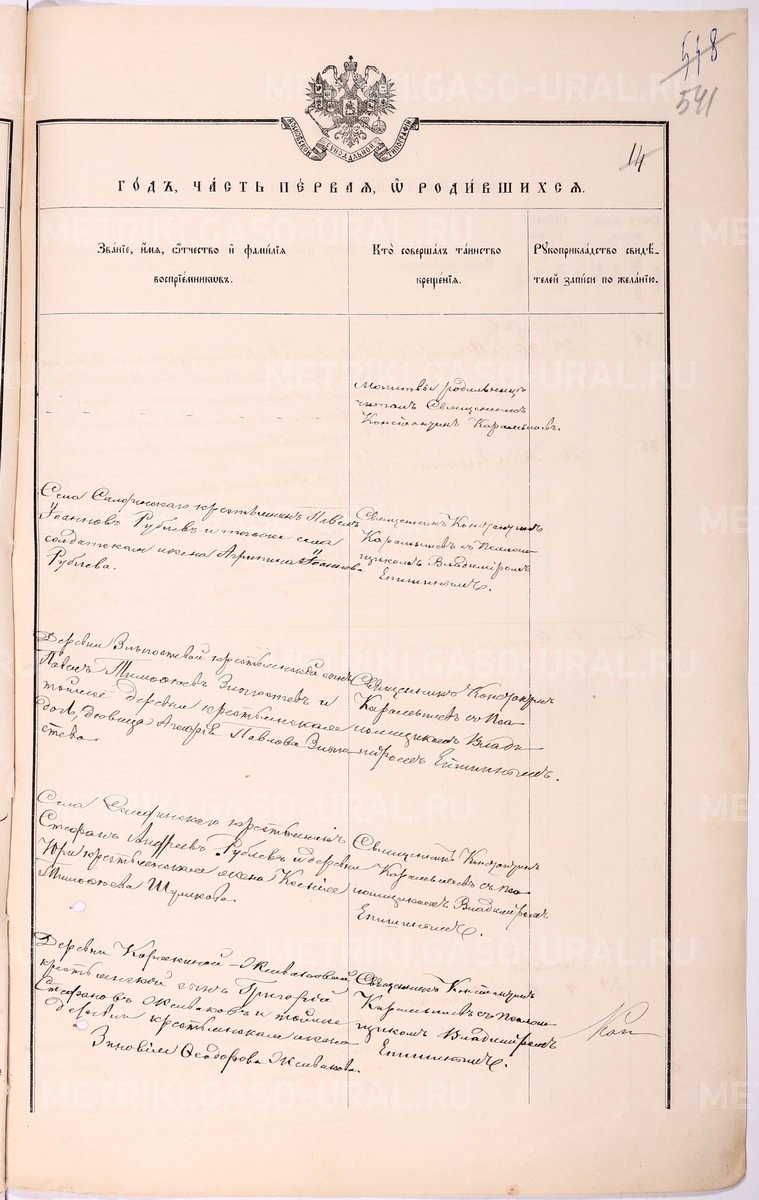 518
541
14
ГОДЪ, ЧАСТЬ ПЕРВАЯ, Ѡ РОДИВШИХСЯ.
Званіе, имя, ѿтчество и фамилія
воспріемниковъ.
Кто совершалъ таинство
крещенія.
Рукоприкладство свидѣ-
телей записи по желанію.
Молитвы родильницѣ
читалъ Священникъ
Константинъ Карамышевъ.
крестьянинъ Павелъ
Іоанновъ Рублевъ и тогоже села
солдатская жена Агрипина Іоаннова
Рублева.
Священникъ Константинъ
Карамышевъ съ Псалом
щикомъ Владиміромъ
Епишинымъ.
Деревни крестьянской сынъ
Павелъ Тимофеевъ и
тойже деревни крестьянская
дочь, дѣвица Павлова
Священникъ Константинъ
Карамышевъ съ Пса
ломщикомъ Влади
міромъ Епишинымъ.
Села крестьянинъ
Стефанъ Андреевъ Рублевъ и деревни
крестьянская жена Ксенія
Тимофеева
Священникъ Константинъ
Карамышевъ съ Пса
ломщикомъ Владиміромъ
Епишинымъ.
Деревни
крестьянской сынъ Григорій
Стефановъ и тойже
деревни крестьянская жена
Зиновія Ѳеодорова
Священникъ Константинъ
Карамышевъ съ Псалом
щикомъ Владиміромъ
Епишинымъ.
METRIKI.GASO-URAL.RU